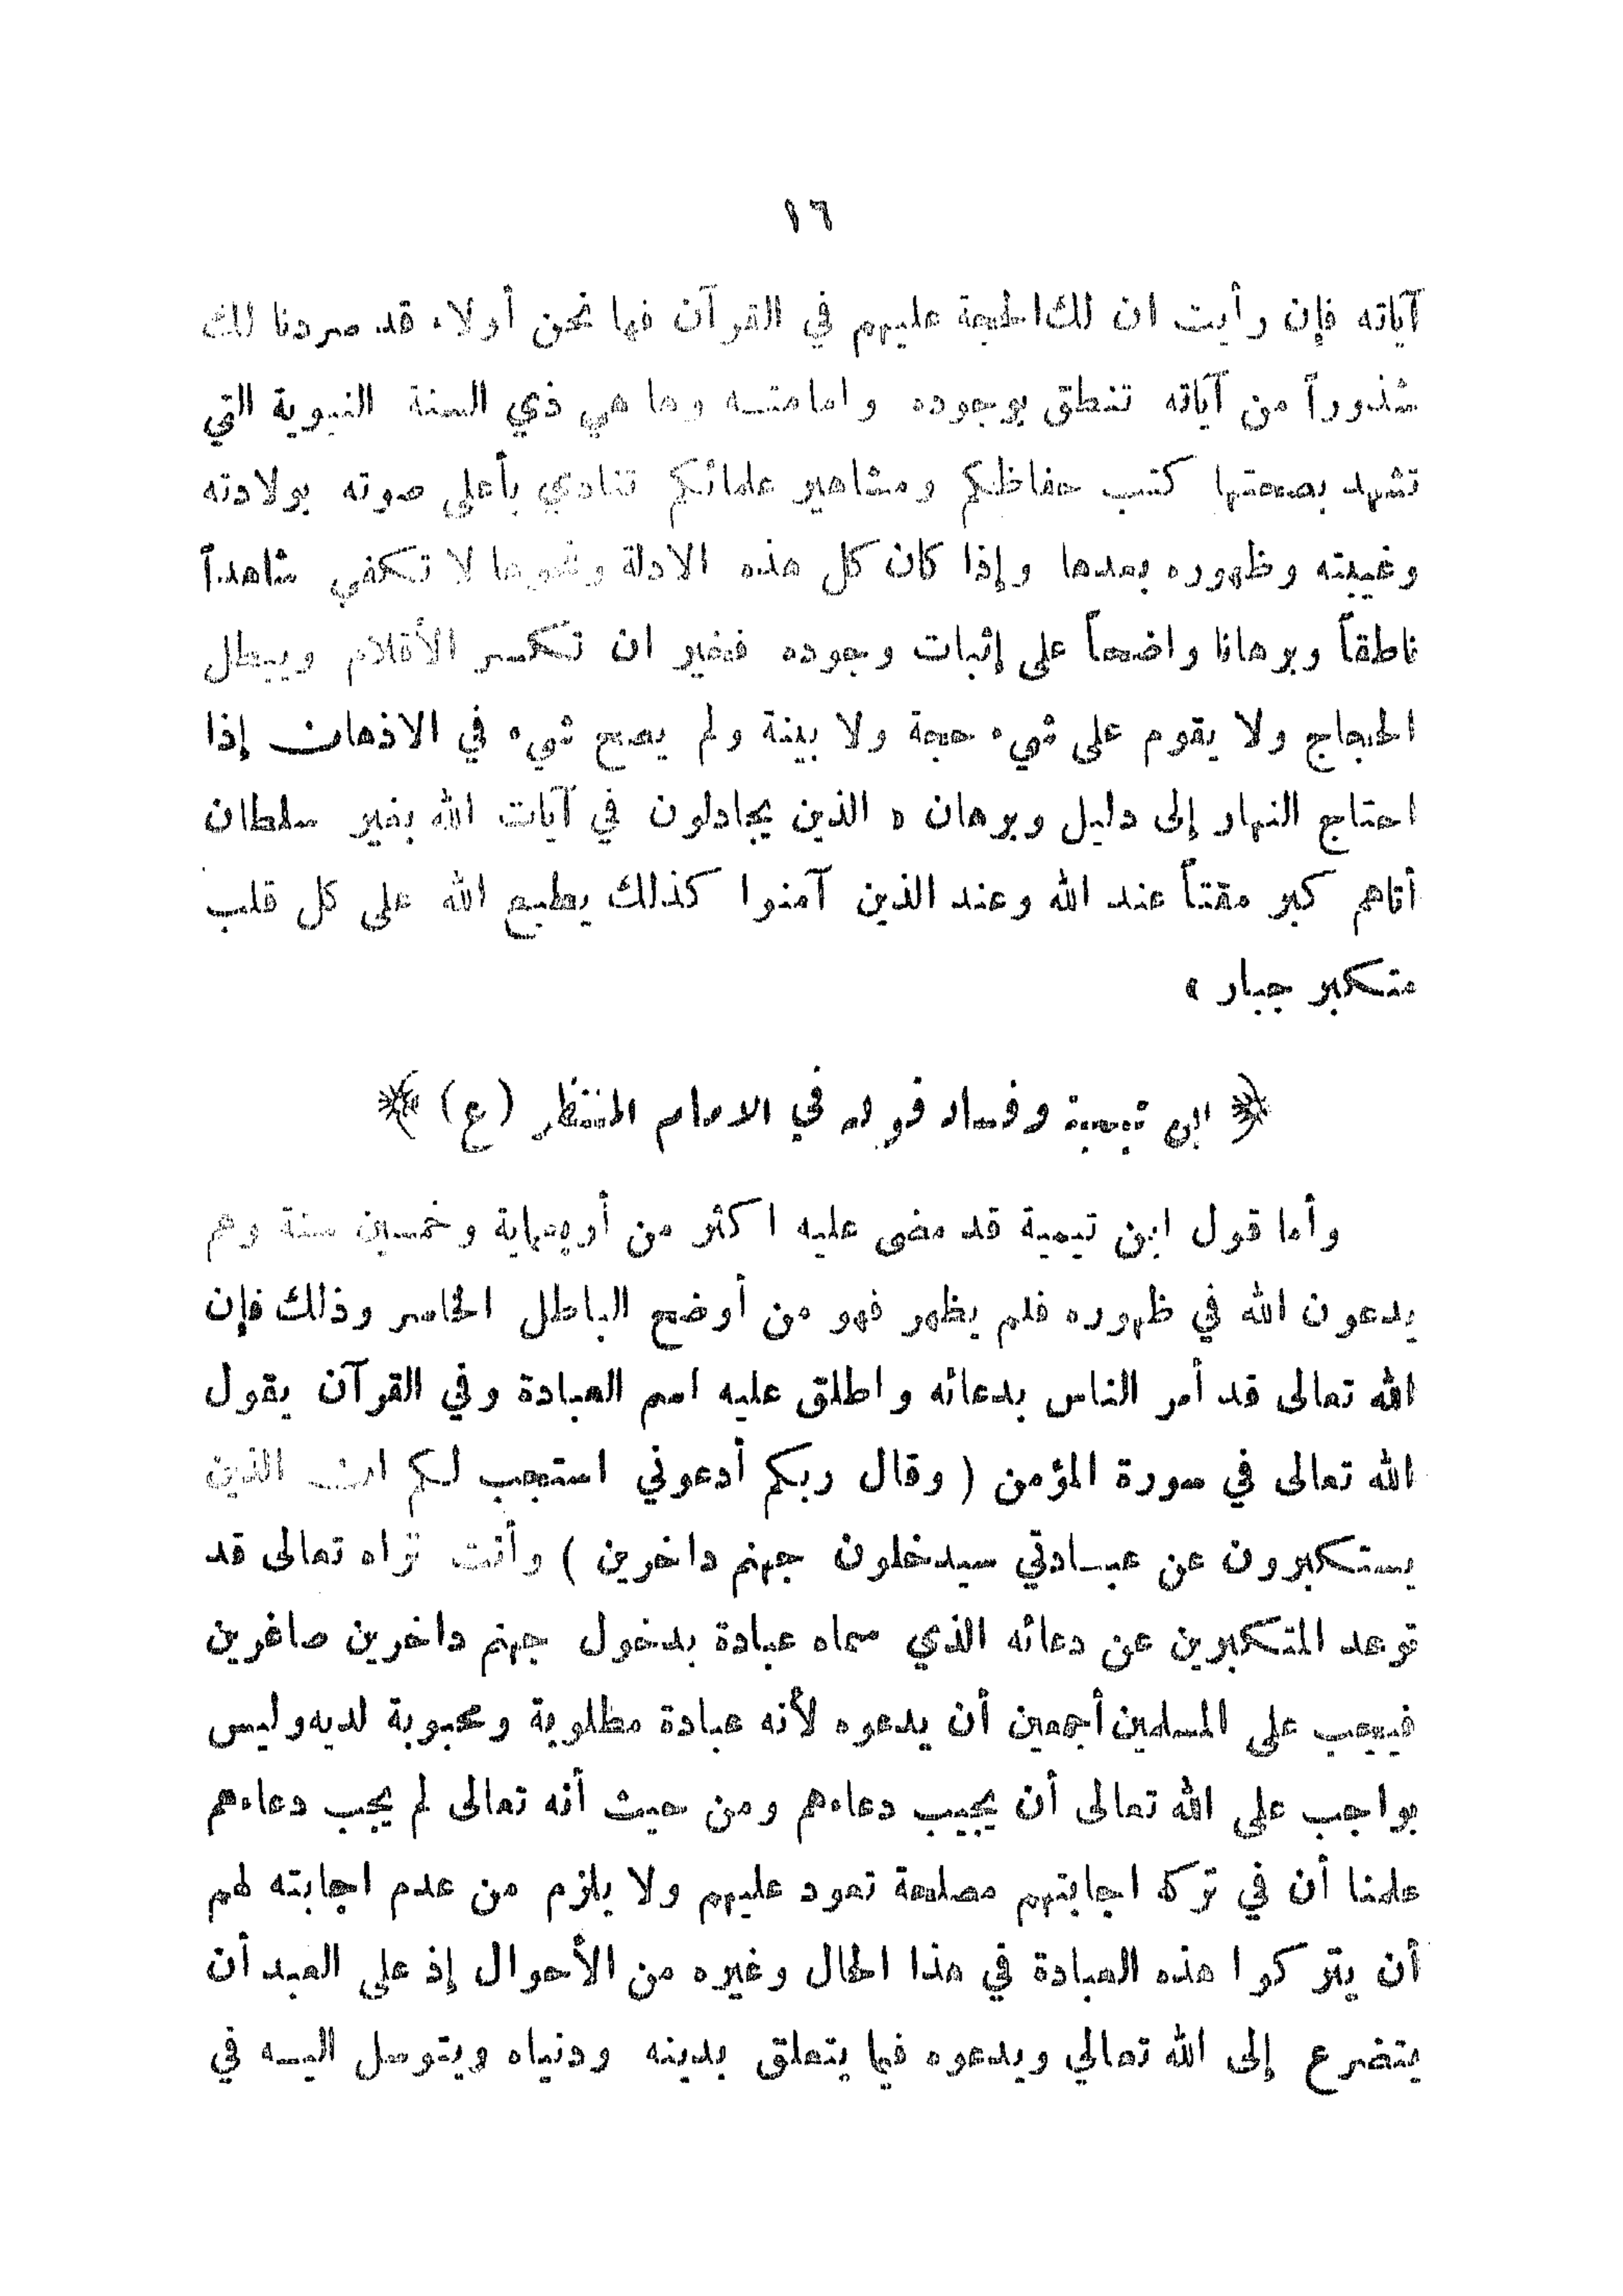 ١٦
آياته فإن رأيت ان لك الحجة عليهم في القرآن فها نحن أولاء قد سردنا لك
شذوراً من آياته تنطق بوجوده وامامته وها هي ذي السنة النبوية التي
تشهد بصحتها كتب حفاظكم ومشاهير علمائكم تنادي بأعلى صوته بولادته
وغيبته وظهوره بعدها وإذا كان كل هذه الادلة وغيرها لا تكفي شاهداً
ناطقاً وبرهانا واضحاً على إثبات وجوده فخير ان تكسر الأقلام ويبطل
الحجاج ولا يقوم على شيء حجة ولا بينة ولم يصح شيء في الاذهان إذا
احتاج النهار إلى دليل وبرهان « الذين يجادلون في آيات الله بغير سلطان
أتاهم كبر مقتاً عند الله وعند الذين آمنوا كذلك يطبع الله على كل قلب
متكبر جبار »
﴿ ابن تيمية وفساد قوله في الامام المنتظر (ع) ﴾
وأما قول ابن تيمية قد مضى عليه اكثر من أربعماية وخمسين سنة وهم
يدعون الله في ظهوره فلم يظهر فهو من أوضح الباطل الخاسر وذلك فإن
الله تعالى قد أمر الناس بدعائه واطلق عليه اسم العبادة وفي القرآن يقول
الله تعالى في سورة المؤمن ( وقال ربكم أدعوني استجب لكم ان الذين
يستكبرون عن عبادتي سيدخلون جهنم داخرين ) وأنت تراه تعالى قد
توعد المتكبرين عن دعائه الذي سماه عبادة بدخول جهنم داخرين صاغرين
فيجب على المسلمين أجمعين أن يدعوه لأنه عبادة مطلوبة ومحبوبة لديه وليس
بواجب على الله تعالى أن يجيب دعاءهم ومن حيث أنه تعالى لم يجب دعاءهم
علمنا أن في تركه اجابتهم مصلحة تعود عليهم ولا يلزم من عدم اجابته لهم
أن يتركوا هذه العبادة في هذا الحال وغيره من الأحوال إذ على العبد أن
يتضرع إلى الله تعالي ويدعوه فيما يتعلق بدينه ودنياه ويتوسل اليه في